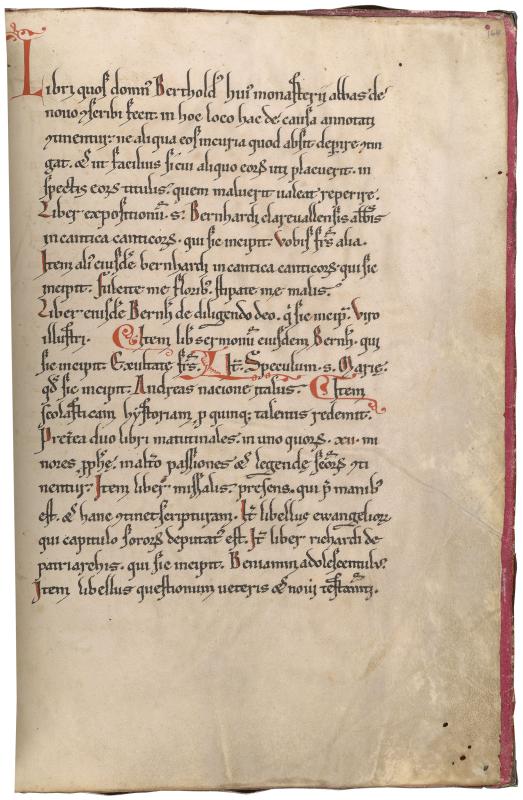 164
Libri quos domn' Berthold' hui' monasterii abbas de
nouo ꝯscribi fecit in hoc loco hac de causa annotati
ꝯtinentur: ne aliqua eos incuria quod absit deperire ꝯtin
gat. & ut facilius sicui aliquo eoꝝ uti placuerit. in
spectis eoꝝ titulis. quem maluerit ualeat reperire.
Liber expositionū. s. Bernhardi clareuallensis abb̄is
in cantica canticoꝝ. qui sic incipit. Vobis fr̄s alia.
Item ali' eiusdē bernhardi in cantica canticoꝝ qui sic
incipit. Fulcite me florib'. stipate me malis.
Liber eiusdē Bernh̄. de diligendo deo. q̇ sic incip̄. Viro
illustri. Item lib' sermonū eiusdem Bernh̄. qui
sic incipit. Exultate fr̄s. It̄. Speculum. s. Marie.
qd̄ sic incipit. Andreas nacione italus. Item
scolasticam hystoriam ꝑ quinq; talentis redemit.
Pret̄ea duo libri matutinales. in uno quoꝝ. xii. mi
nores ꝓphę. in alt̄o passiones & legende sc̄oꝝ ꝯti
nentur. Item liber missalis. presens. qui p̄ manib'
est. & hanc ꝯtinet scripturam. It̄. libellus ewangelioꝝ
qui capitulo soroꝝ deputat' est. It̄. liber richardi de
patriarchis. qui sic incipit. Beniamin adolescentul'.
Item libellus questionum ueteris & noui testam̄ti.